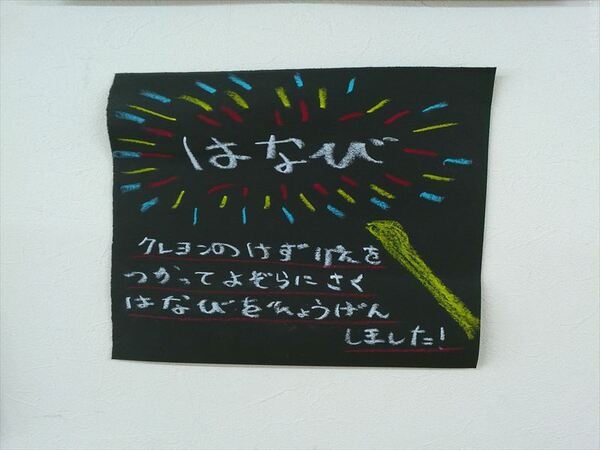 はなび
クレヨンのけずりえを
つかってよぞらにさく
はなびをひょうげん
しました!